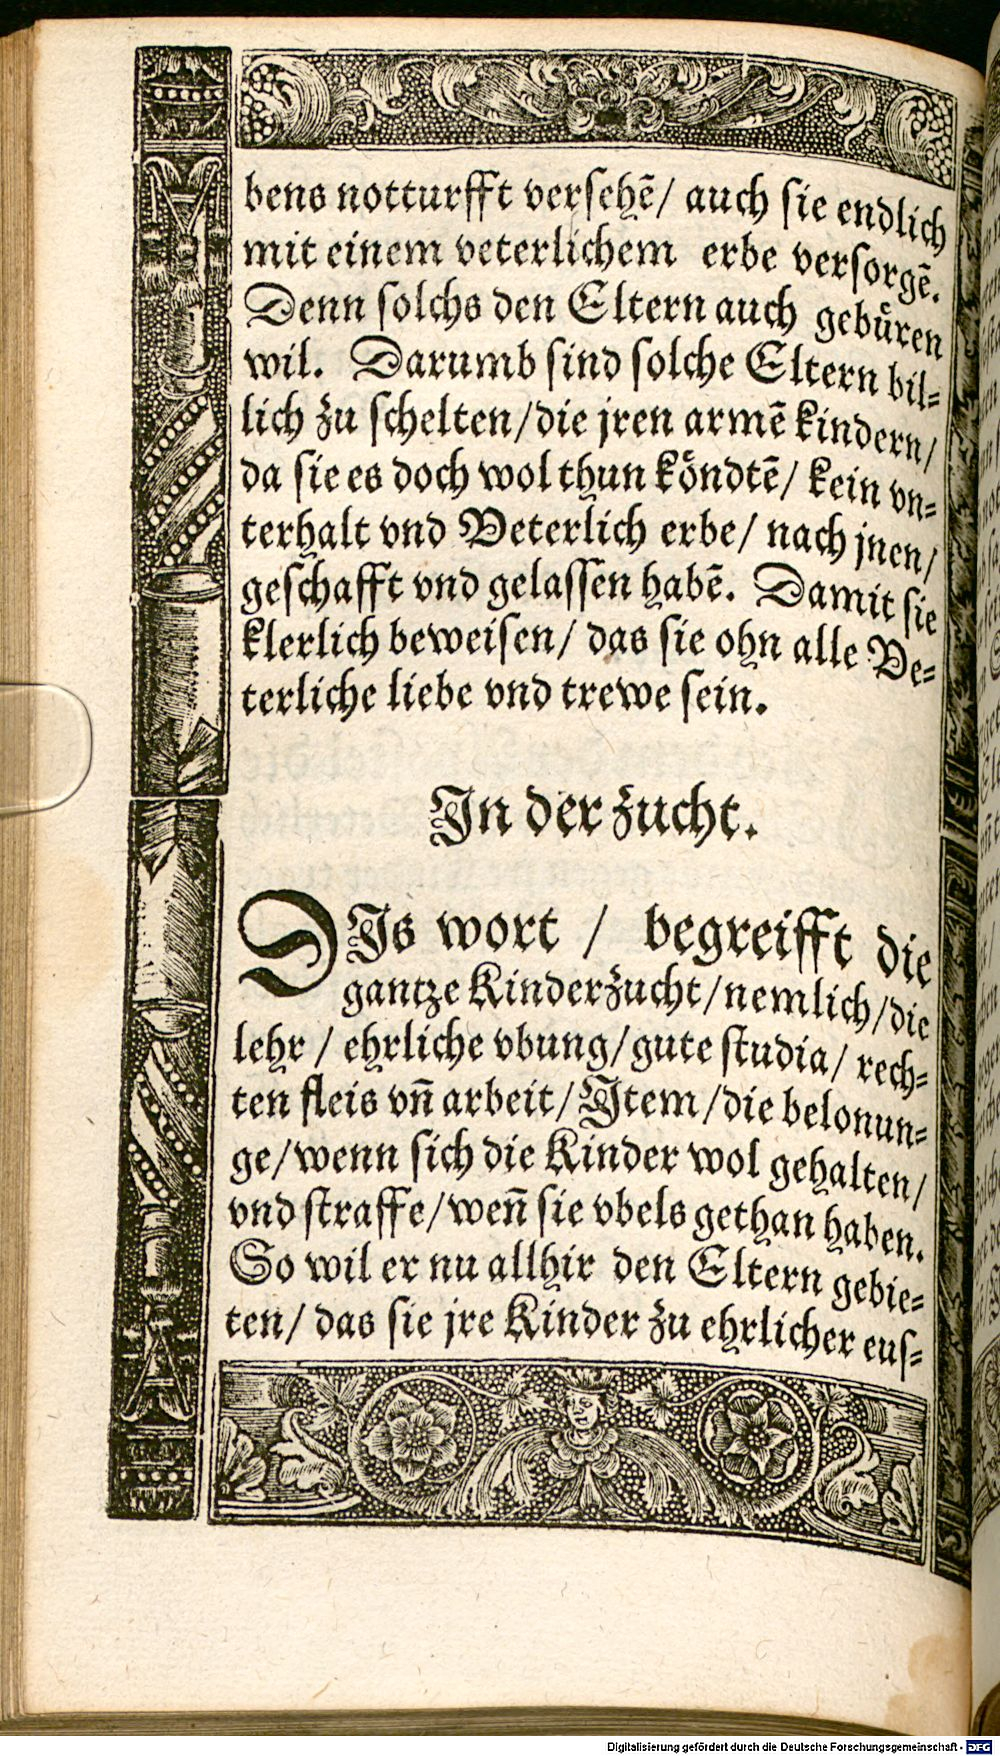 bens notturfft versehē/ auch sie endlich
mit einem veterlichem erbe versorgē.
Denn solchs den Eltern auch gebüren
wil. Darumb sind solche Eltern bil⸗
lich zu schelten/die jren armē kindern/
da sie es doch wol thun köndtē/ kein vn⸗
terhalt vnd Veterlich erbe/ nach jnen/
geschafft vnd gelassen habē. Damit sie
klerlich beweisen/ das sie ohn alle Ve⸗
terliche liebe vnd trewe sein.
In der zucht.
DIs wort / begreifft die
gantze Kinderzucht/nemlich/die
lehr / ehrliche vbung/gute studia/ rech⸗
ten fleis vn̄ arbeit/Item/die belonun⸗
ge/wenn sich die Kinder wol gehalten/
vnd straffe/wen̄ sie vbels gethan haben.
So wil er nu allhir den Eltern gebie⸗
ten/ das sie jre Kinder zu ehrlicher eus⸗
Digitalisierung gefördert durch die Deutsche Forschungsgemeinschaft - DFG